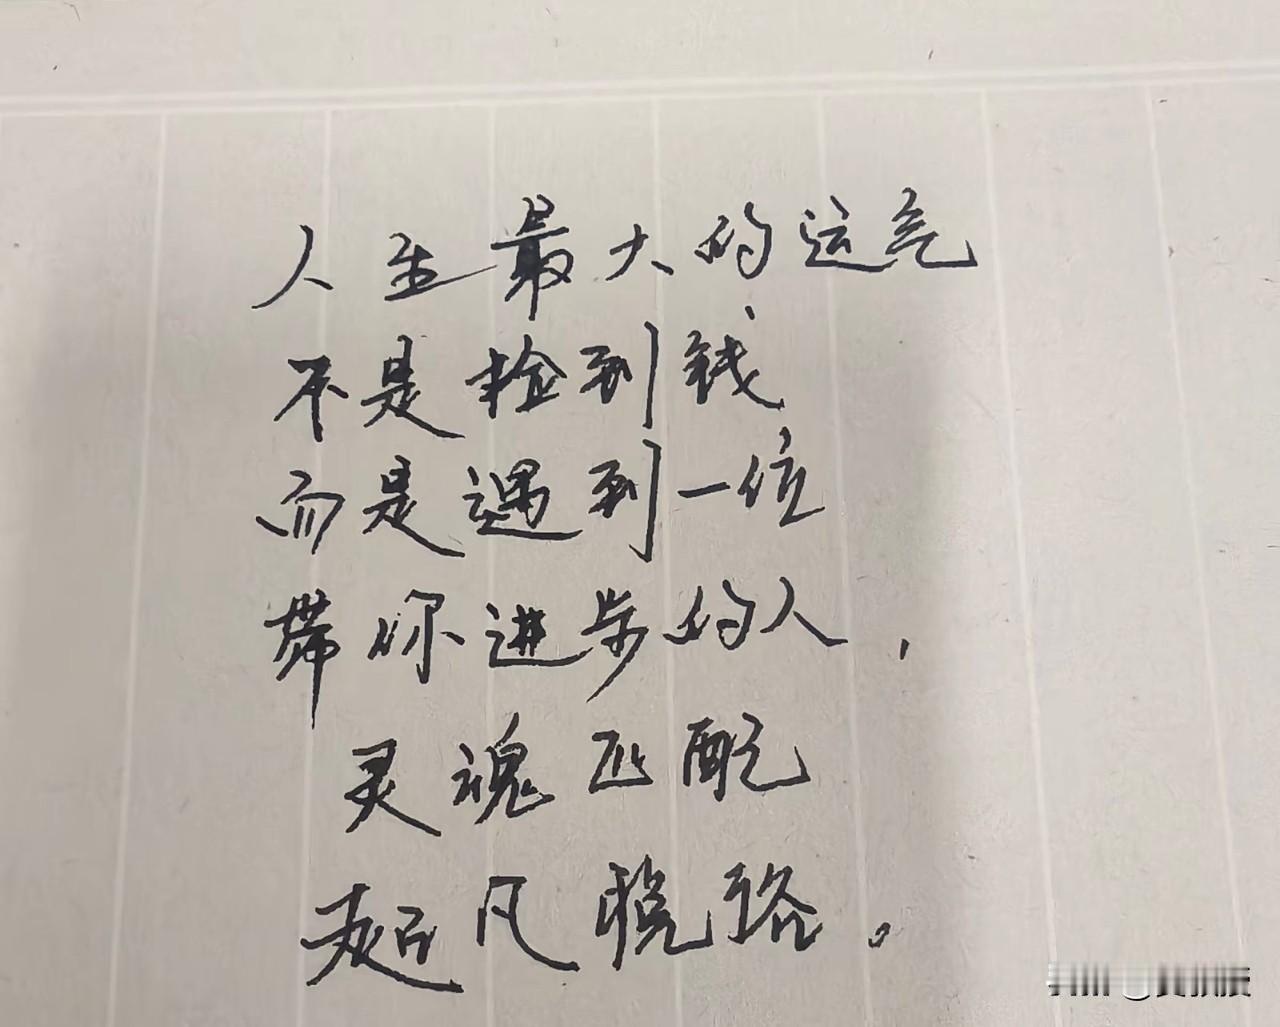 人生最大的运气
不是捡到钱
而是遇到一位
带你进步的人，
灵魂匹配
起风晓路。